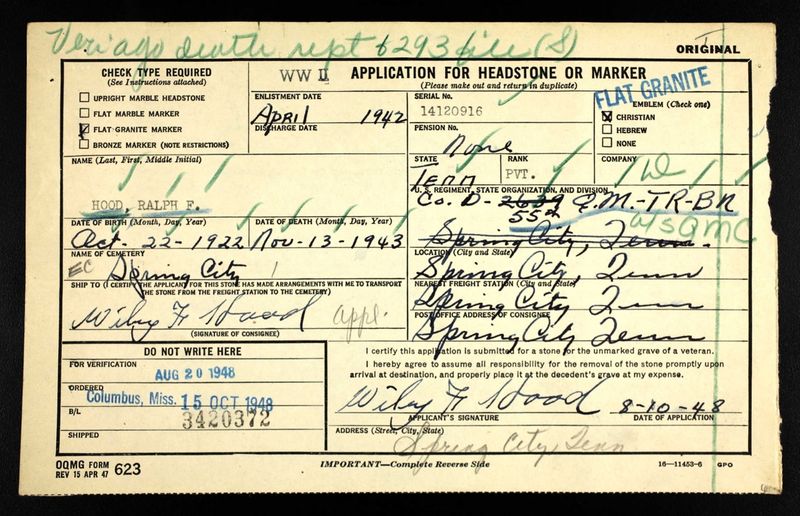 death rept 6293 file (S)
ORIGINAL
CHECK TYPE REQUIRED
(See Instructions attached)
UPRIGHT MARBLE HEADSTONE
FLAT MARBLE MARKER
FLAT GRANITE MARKER
BRONZE MARKER (NOTE RESTRICTIONS)
WW II APPLICATION FOR HEADSTONE OR MARKER
(Please make out and return in duplicate)
ENLISTMENT DATE
April 1942
DISCHARGE DATE
SERIAL No.
14120916
PENSION No.
None
FLAT GRANITE
EMBLEM (Check one)
CHRISTIAN
HEBREW
NONE
STATE
Tenn
RANK
PVT.
COMPANY
D
NAME (Last, First, Middle Initial)
HOOD, RALPH F.
U. S. REGIMENT, STATE ORGANIZATION, AND DIVISION
Co. D- 2639 Q.M.-TR-BN
55th
USQMC
DATE OF BIRTH (Month, Day, Year)
Oct- 22-1922
DATE OF DEATH (Month, Day, Year)
Nov-13-1943
Spring City, Tenn.
NAME OF CEMETERY
EC Spring City
LOCATION (City and State)
Spring City, Tenn
SHIP TO (I CERTIFY THE APPLICANT FOR THIS STONE HAS MADE ARRANGEMENTS WITH ME TO TRANSPORT THE STONE FROM THE FREIGHT STATION TO THE CEMETERY)
Wiley F Hood appl.
(SIGNATURE OF CONSIGNEE)
NEAREST FREIGHT STATION (City and State)
Spring City Tenn
POST OFFICE ADDRESS OF CONSIGNEE
Spring City Tenn
DO NOT WRITE HERE
FOR VERIFICATION
AUG 20 1948
ORDERED
Columbus, Miss. 15 OCT 1948
B/L
3420372
SHIPPED
I certify this application is submitted for a stone for the unmarked grave of a veteran.
I hereby agree to assume all responsibility for the removal of the stone promptly upon arrival at destination, and properly place it at the decedent's grave at my expense.
Wiley F Hood 8-10-48
APPLICANT'S SIGNATURE
DATE OF APPLICATION
ADDRESS (Street, City, State)
Spring City, Tenn
OQMG FORM
REV 15 APR 47
623
IMPORTANT—Complete Reverse Side
16—11453-6 GPO